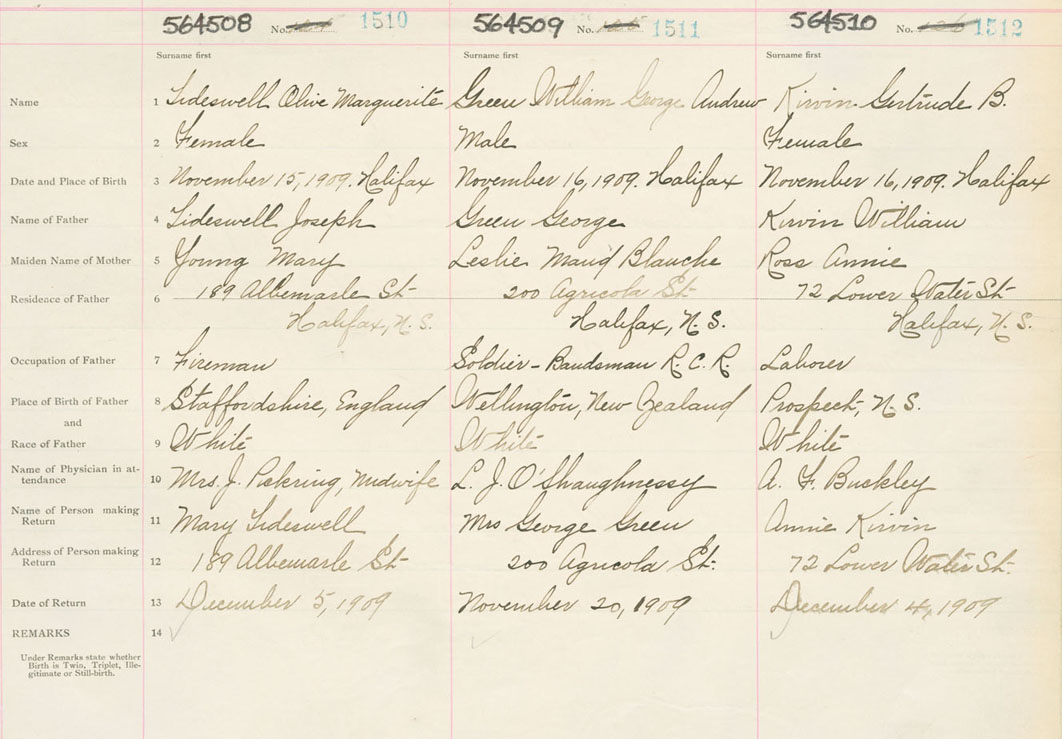 564508 No. 1510 564509 No. 1511 564510 No. 1512
Surname first Surname first Surname first
Name 1 Tideswell Olive Marguerite Green William George Andrew Kirvin Gertrude B.
Sex 2 Female Male Female
Date and Place of Birth 3 November 15, 1909. Halifax November 16, 1909. Halifax November 16, 1909. Halifax
Name of Father 4 Tideswell Joseph Green George Kirvin William
Maiden Name of Mother 5 Young Mary Leslie Maud Blanche Ross Annie
Residence of Father 6 189 Albemarle St 200 Agricola St. 72 Lower Water St
Halifax, N.S. Halifax, N.S. Halifax, N.S.
Occupation of Father 7 Fireman Soldier - Bandsman R.C.R. Laborer
Place of Birth of Father 8 Staffordshire, England Wellington, New Zealand Prospect, N.S.
and
Race of Father 9 White White White
Name of Physician in at-
tendance 10 Mrs. J. Pickring, Midwife L. J. O'Shaughnessy A. F. Buckley
Name of Person making
Return 11 Mary Tideswell Mrs George Green Annie Kirvin
Address of Person making
Return 12 189 Albemarle St 200 Agricola St. 72 Lower Water St.
Date of Return 13 December 5, 1909 November 20, 1909 December 4, 1909
REMARKS 14
Under Remarks state whether
Birth is Twin, Triplet, Ille-
gitimate or Still-birth.